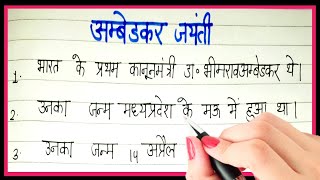 अम्बेडकर जयंती
1. भारत के प्रथम कानूनमंत्री डा॰ भीमरावअम्बेडकर थे।
2. उनका जन्म मध्यप्रदेश के मऊ में हुआ था।
3. उनका जन्म 14 अप्रैल